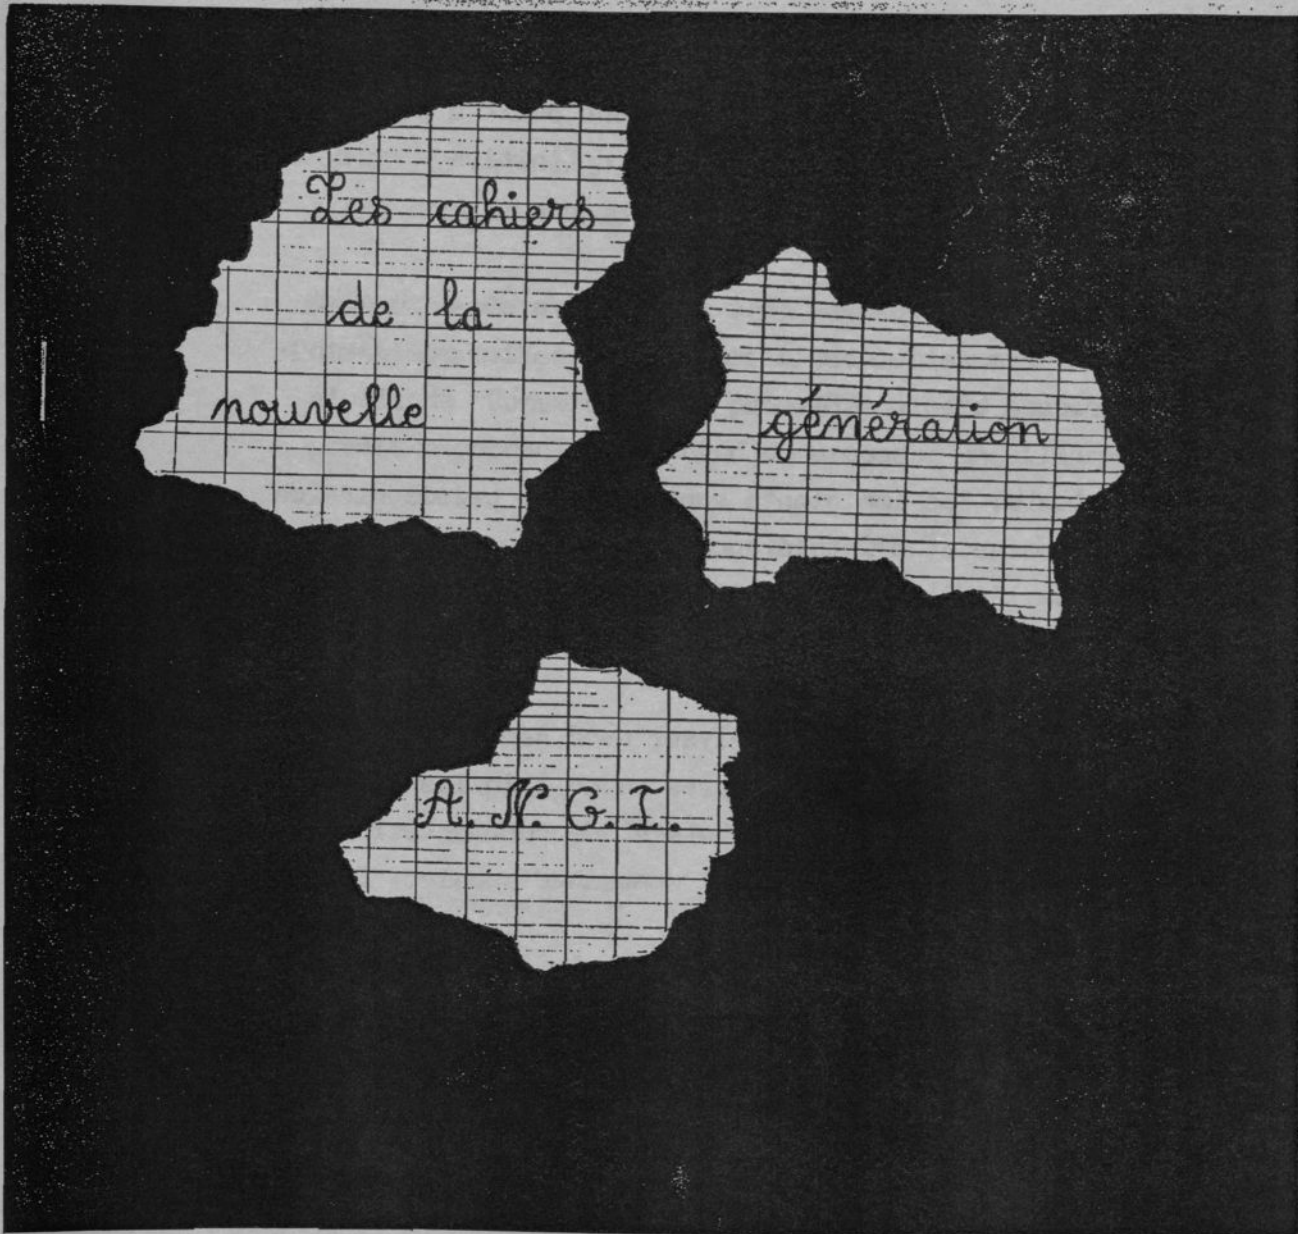 Les cahiers
de la
nouvelle
génération
A.N.G.I.